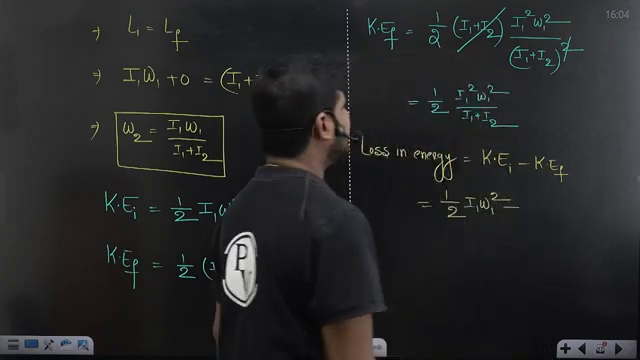 ⇒ L₁ = L_f
⇒ I₁ω₁ + 0 = (I₁+I
⇒ ω₂ = I₁ω₁ / (I₁+I₂)
K·E_i = 1/2 I₁ω
K·E_f = 1/2 (I
16:04
K·E_f = 1/2 (I₁+I₂) I₁²ω₁² / (I₁+I₂)²
= 1/2 I₁²ω₁² / (I₁+I₂)
Loss in energy = K·E_i − K·E_f
= 1/2 I₁ω₁² −
PW